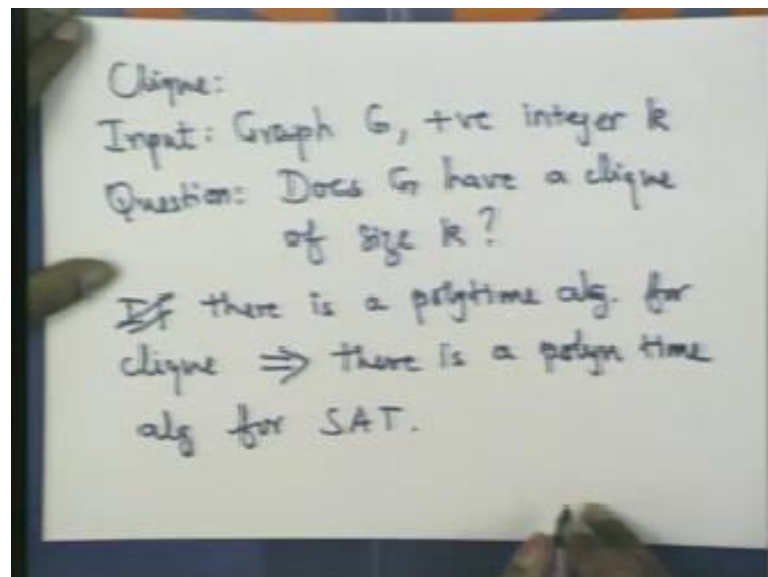 Clique:
Input: Graph G, +ve integer k
Question: Does G have a clique
of size k?
If there is a polytime alg. for
clique ⇒ there is a polyn time
alg for SAT.